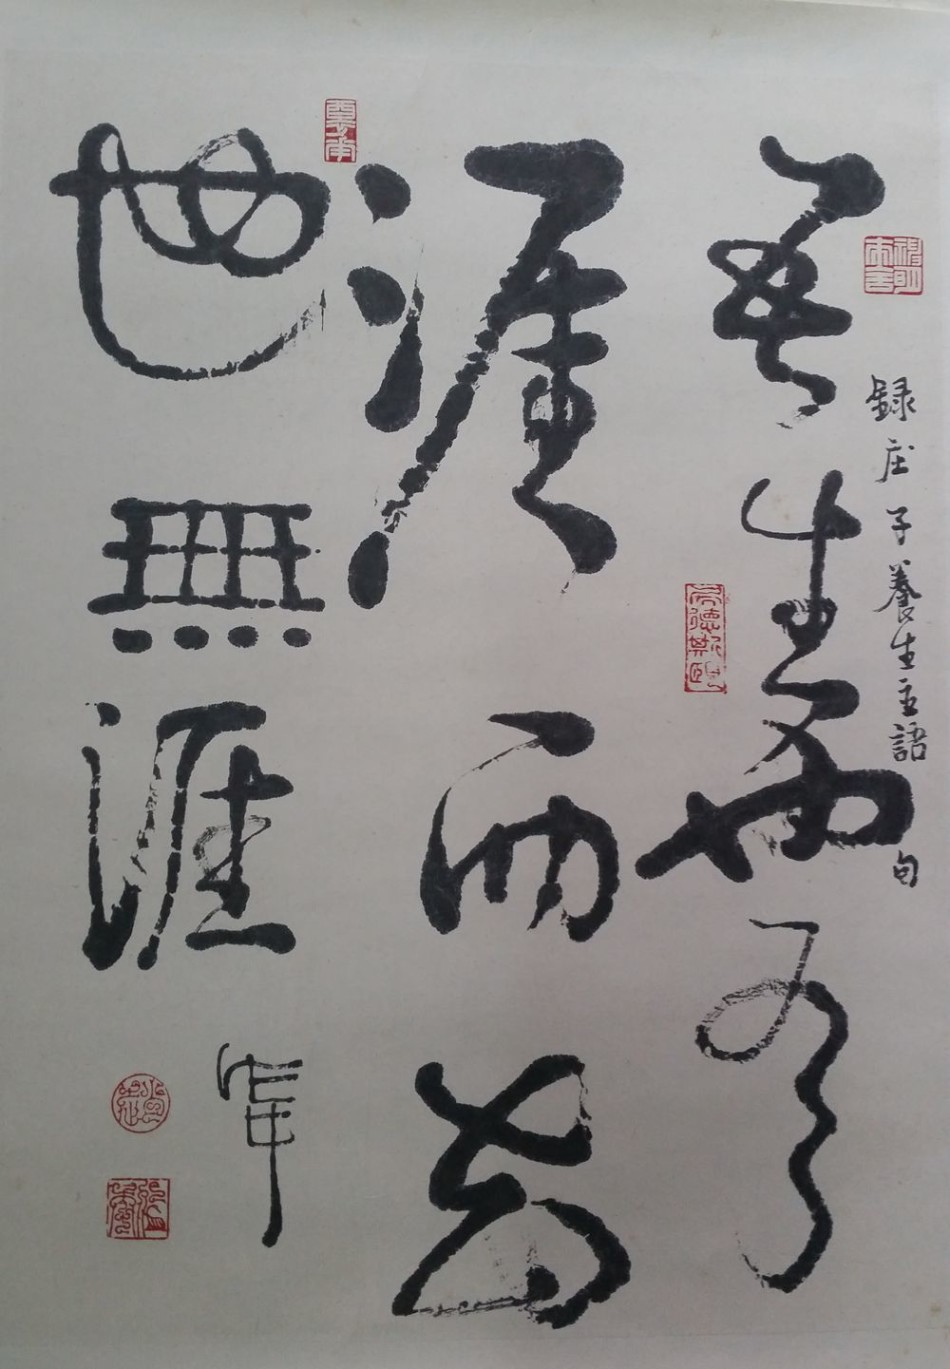 録庄子養生主語句
吾生也有
涯而知
也無涯